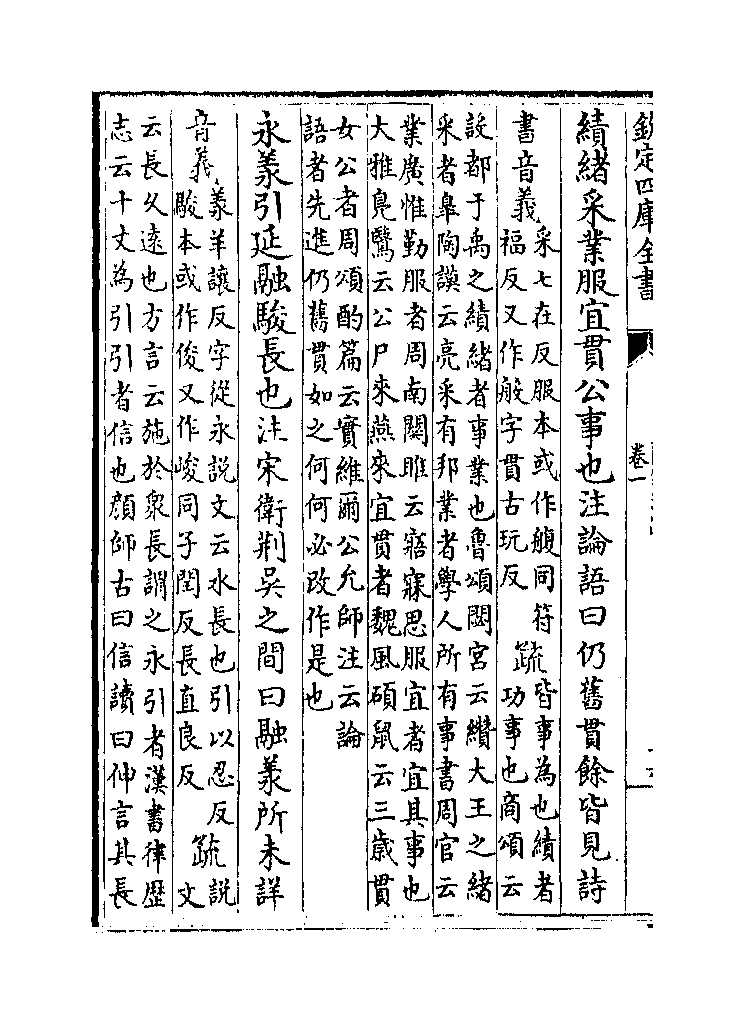 欽定四庫全書
卷一
績緒采業服宜貫公事也注論語曰仍舊貫餘皆見詩
書音義采七在反服本或作䑧同符
福反又作般字貫古玩反疏皆事為也績者
功事也商頌云
設都于禹之績緒者事業也魯頌閟宮云纘大王之緒
采者臯陶謨云亮采有邦業者學人所有事書周官云
業廣惟勤服者周南關雎云寤寐思服宜者宜其事也
大雅鳧鷖云公尸來燕來宜貫者魏風碩鼠云三歲貫
女公者周頌酌篇云實維爾公允師注云論
語者先進仍舊貫如之何何必改作是也
永羕引延融駿長也注宋衛荆吳之間曰融羕所未詳
音義羕羊讓反字從永說文云水長也引以忍反
駿本或作俊又作峻同子閏反長直良反疏說
文
云長久遠也方言云施於衆長謂之永引者漢書律歷
志云十丈為引引者信也顔師古曰信讀曰伸言其長